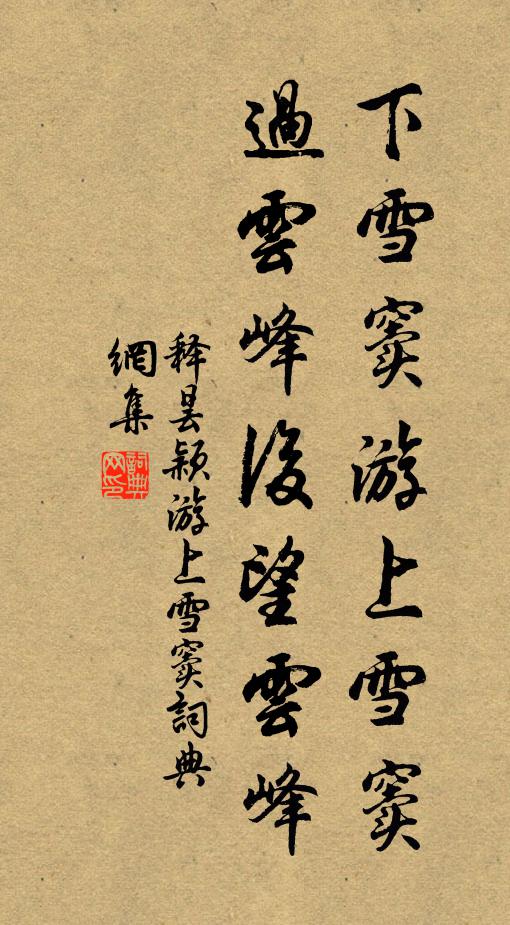 下雪窦游上雪窦
過雲峰後望雲峰
释昙颖游上雪窦詞典
網集
詞典
网印